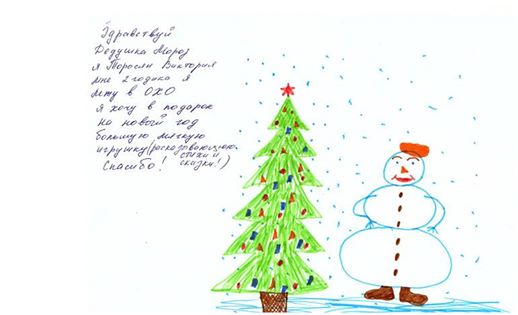 Здравствуй
Дедушка Мороз
я Торосян Виктория
мне 2 годика я
лежу в ОХО
я хочу в подарок
на новый год
большую мягкую
игрушку (рассказывающую
стихи и
сказки!)
Спасибо!